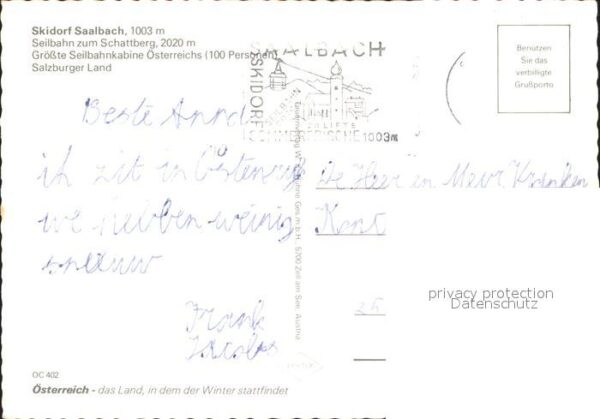 Skidorf Saalbach, 1003 m
Seilbahn zum Schattberg, 2020 m
Größte Seilbahnkabine Österreichs (100 Personen)
Salzburger Land
SAALBACH
SKIDORF
LIFTE
SOMMERFRISCHE 1003m
Benützen
Sie das
verbilligte
Grußporto
Beste
ik zit in
we hebben weinig
Frank
Jacobs
De Heer en Mevr.
25
Ges.m.b.H., 5700 Zell am See, Austria
privacy protection
Datenschutz
OC 402
Österreich - das Land, in dem der Winter stattfindet